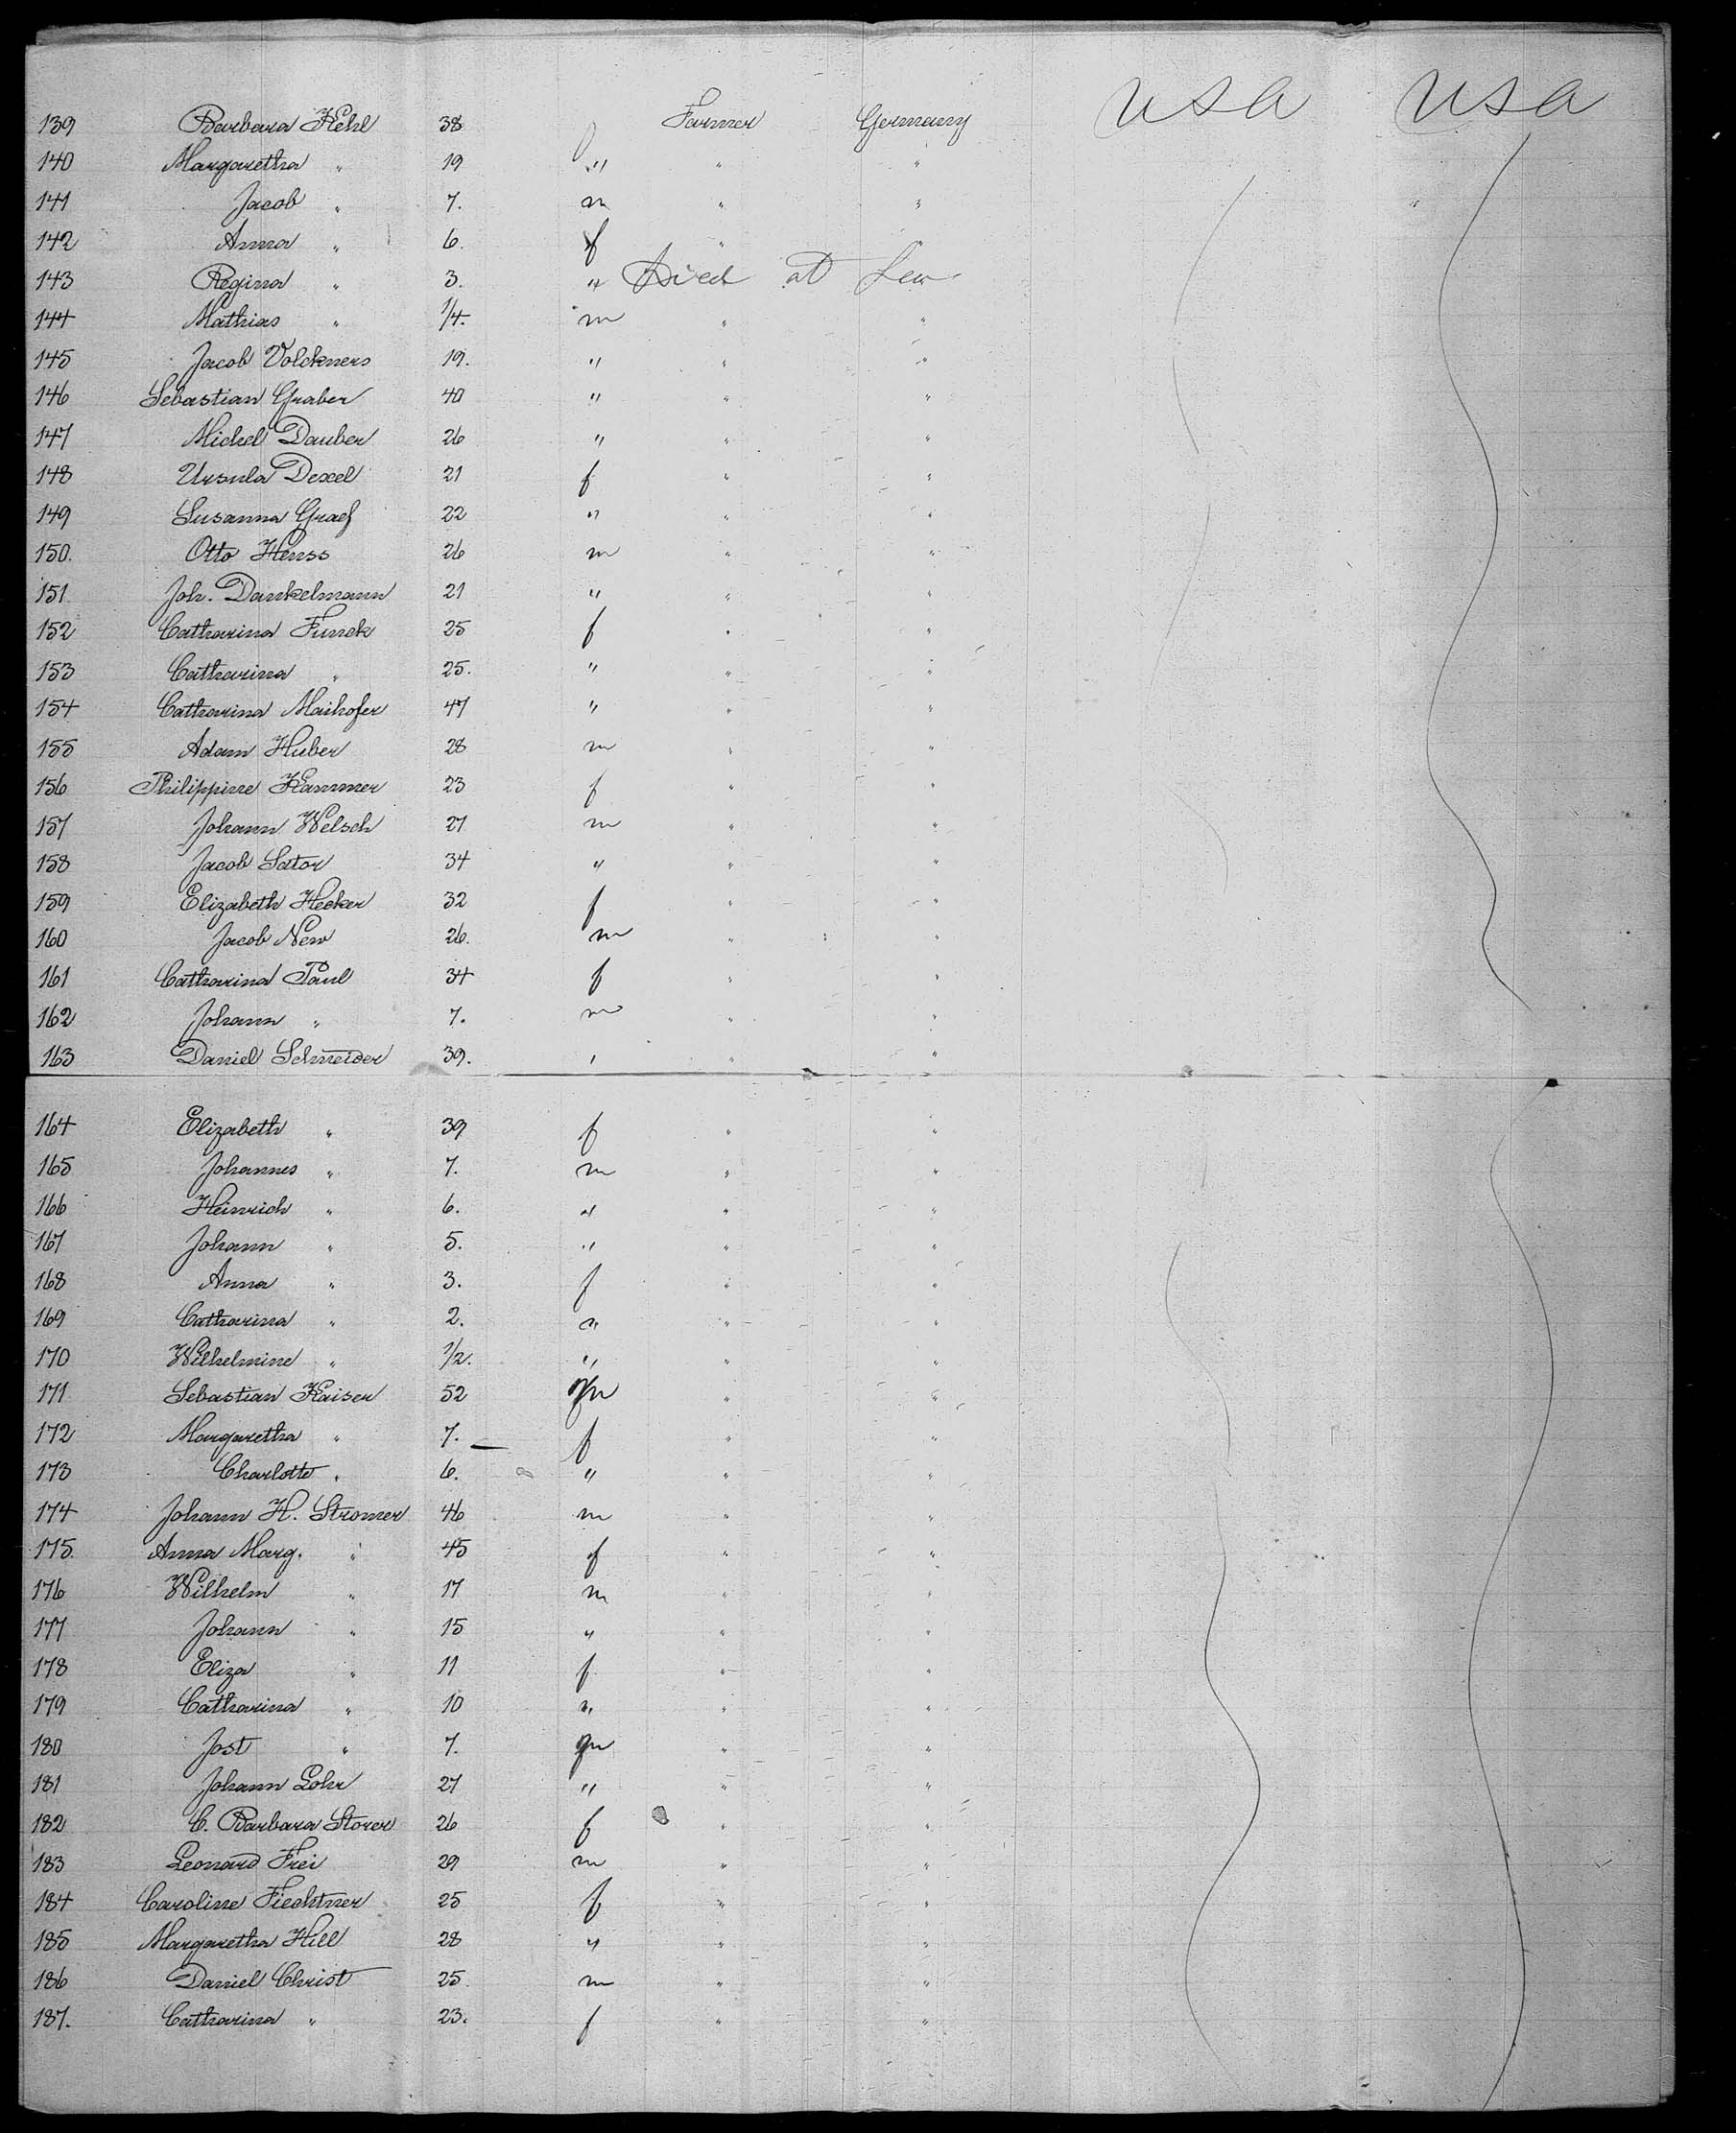 USA USA
139 Barbara Kehl 38 f Farmer Germany
140 Margaretha " 19 " " "
141 Jacob " 7. m " "
142 Anna " 6. f " "
143 Regina " 3. " Died at Sea
144 Mathias " 1/4. m " "
145 Jacob Volckners 19. " " "
146 Sebastian Graber 40 " " "
147 Michel Dauber 26 " " "
148 Ursula Dexel 21 f " "
149 Susanna Graef 22 " " "
150. Otto Henss 26 m " "
151 Joh. Dankelmann 21 " " "
152 Catharina Funck 25 f " "
153 Catharina " 25. " " "
154 Catharina Maihofer 47 " " "
155 Adam Huber 28 m " "
156 Philippine Kammer 23 f " "
157 Johann Welsch 27 m " "
158 Jacob Sator 34 " " "
159 Elizabeth Hecker 32 f " "
160 Jacob New 26. m " "
161 Catharina Paul 34 f " "
162 Johann " 7. m " "
163 Daniel Schneider 39. " " "
164 Elizabeth " 39 f " "
165 Johannes " 7. m " "
166 Heinrich " 6. " " "
167 Johann " 5. " " "
168 Anna " 3. f " "
169 Catharina " 2. " " "
170 Wilhelmine " 1/2. " " "
171 Sebastian Kaiser 52 m " "
172 Margaretha " 7. f " "
173 Charlotte " 6. " " "
174 Johann H. Stromer 46 m " "
175. Anna Marg. " 45 f " "
176 Wilhelm " 17 m " "
177 Johann " 15 " " "
178 Eliza " 11 f " "
179 Catharina " 10 " " "
180 Jost " 7. m " "
181 Johann Lohr 27 " " "
182 C. Barbara Storer 26 f " "
183 Leonard Frei 29 m " "
184 Caroline Fiechtner 25 f " "
185 Margaretha Hill 28 " " "
186 Daniel Christ 25. m " "
187. Catharina " 23. f " "